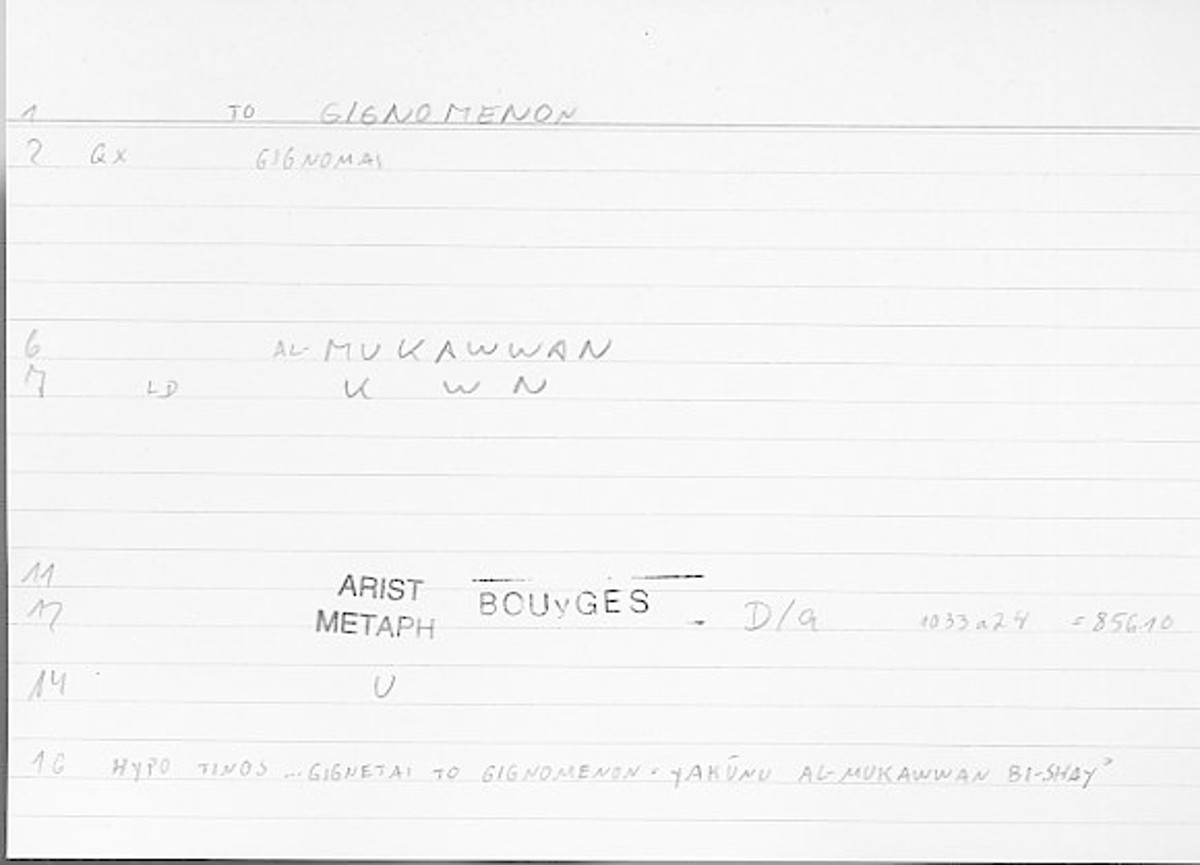 1 TO GIGNOMENON
2 GX GIGNOMAI
6 AL-MUKAWWAN
7 LD K W N
11 ARIST BOUyGES
12 METAPH - D/G 1033a24 = 856.10
14 U
16 HYPO TINOS ... GIGNETAI TO GIGNOMENON = yAKŪNU AL-MUKAWWAN BI-SHAYʾ